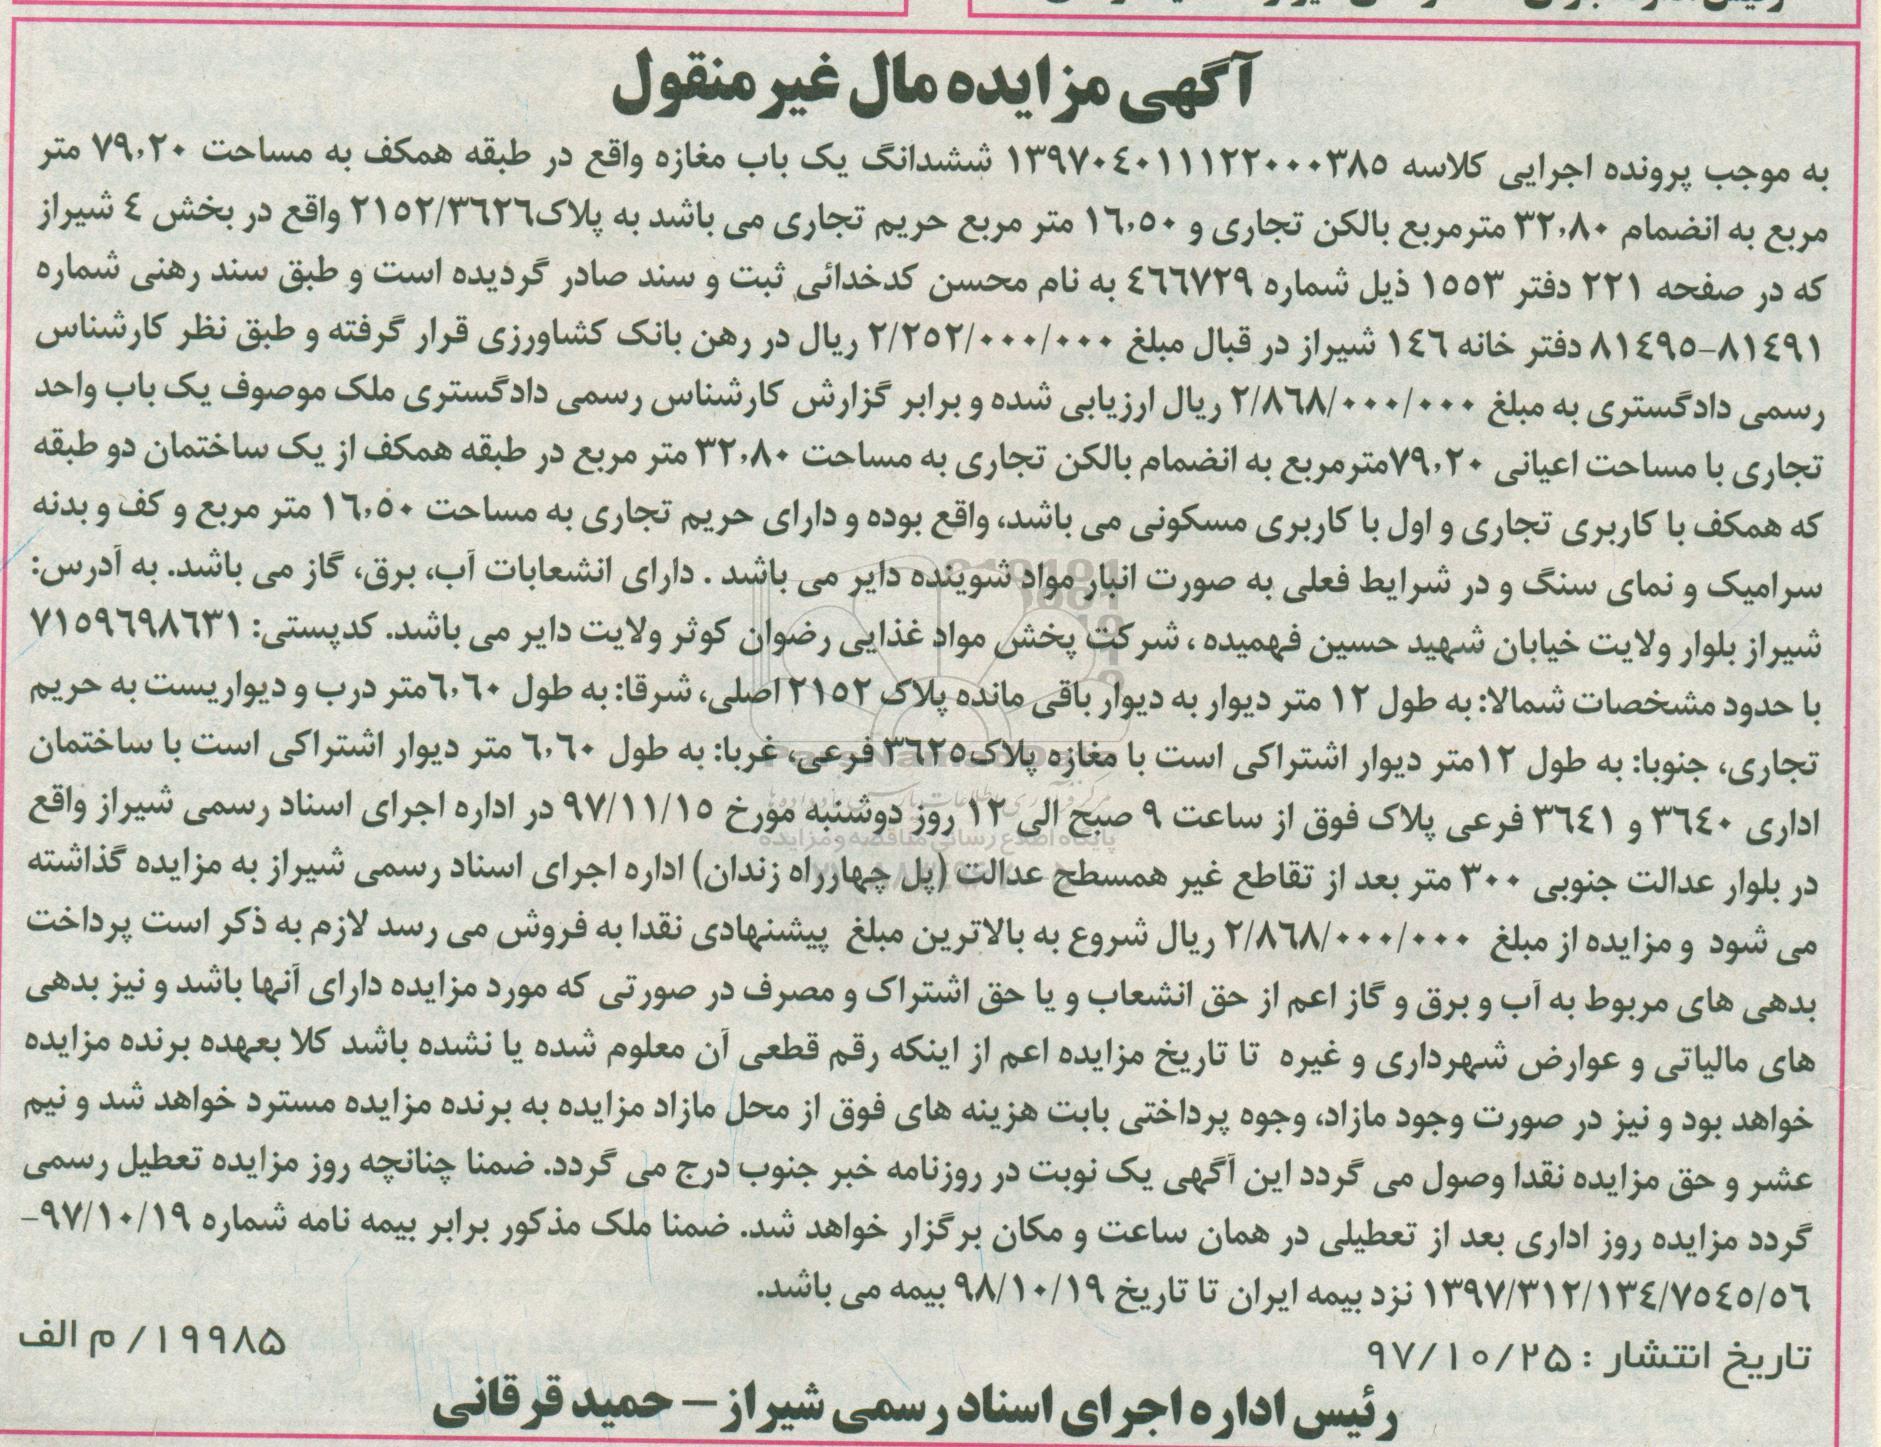 آگهی مزایده مال غیر منقول
به موجب پرونده اجرایی کلاسه ۱۳۹۷۰۴۰۱۱۱۲۲۰۰۰۳۸۵ ششدانگ یک باب مغازه واقع در طبقه همکف به مساحت ۷۹٫۲۰ متر
مربع به انضمام ۳۲٫۸۰ مترمربع بالکن تجاری و ۱۶٫۵۰ متر مربع حریم تجاری می باشد به پلاک۲۱۵۲/۳۶۲۶ واقع در بخش ۴ شیراز
که در صفحه ۲۲۱ دفتر ۱۵۵۳ ذیل شماره ۴۶۶۷۲۹ به نام محسن کدخدائی ثبت و سند صادر گردیده است و طبق سند رهنی شماره
۸۱۴۹۱–۸۱۴۹۵ دفتر خانه ۱۴۶ شیراز در قبال مبلغ ۲/۲۵۲/۰۰۰/۰۰۰ ریال در رهن بانک کشاورزی قرار گرفته و طبق نظر کارشناس
رسمی دادگستری به مبلغ ۲/۸۶۸/۰۰۰/۰۰۰ ریال ارزیابی شده و برابر گزارش کارشناس رسمی دادگستری ملک موصوف یک باب واحد
تجاری با مساحت اعیانی ۷۹٫۲۰مترمربع به انضمام بالکن تجاری به مساحت ۳۲٫۸۰ متر مربع در طبقه همکف از یک ساختمان دو طبقه
که همکف با کاربری تجاری و اول با کاربری مسکونی می باشد، واقع بوده و دارای حریم تجاری به مساحت ۱۶٫۵۰ متر مربع و کف و بدنه
سرامیک و نمای سنگ و در شرایط فعلی به صورت انبار مواد شوینده دایر می باشد . دارای انشعابات آب، برق، گاز می باشد. به آدرس:
شیراز بلوار ولایت خیابان شهید حسین فهمیده ، شرکت پخش مواد غذایی رضوان کوثر ولایت دایر می باشد. کدپستی: ۷۱۵۹۶۹۸۶۳۱
با حدود مشخصات شمالا: به طول ۱۲ متر دیوار به دیوار باقی مانده پلاک ۲۱۵۲ اصلی، شرقا: به طول ۶٫۶۰متر درب و دیواریست به حریم
تجاری، جنوبا: به طول ۱۲متر دیوار اشتراکی است با مغازه پلاک۳۶۲۵ فرعی، غربا: به طول ۶٫۶۰ متر دیوار اشتراکی است با ساختمان
اداری ۳۶۴۰ و ۳۶۴۱ فرعی پلاک فوق از ساعت ۹ صبح الی ۱۲ روز دوشنبه مورخ ۹۷/۱۱/۱۵ در اداره اجرای اسناد رسمی شیراز واقع
در بلوار عدالت جنوبی ۳۰۰ متر بعد از تقاطع غیر همسطح عدالت (پل چهارراه زندان) اداره اجرای اسناد رسمی شیراز به مزایده گذاشته
می شود و مزایده از مبلغ ۲/۸۶۸/۰۰۰/۰۰۰ ریال شروع به بالاترین مبلغ پیشنهادی نقدا به فروش می رسد لازم به ذکر است پرداخت
بدهی های مربوط به آب و برق و گاز اعم از حق انشعاب و یا حق اشتراک و مصرف در صورتی که مورد مزایده دارای آنها باشد و نیز بدهی
های مالیاتی و عوارض شهرداری و غیره تا تاریخ مزایده اعم از اینکه رقم قطعی آن معلوم شده یا نشده باشد کلا بعهده برنده مزایده
خواهد بود و نیز در صورت وجود مازاد، وجوه پرداختی بابت هزینه های فوق از محل مازاد مزایده به برنده مزایده مسترد خواهد شد و نیم
عشر و حق مزایده نقدا وصول می گردد این آگهی یک نوبت در روزنامه خبر جنوب درج می گردد. ضمنا چنانچه روز مزایده تعطیل رسمی
گردد مزایده روز اداری بعد از تعطیلی در همان ساعت و مکان برگزار خواهد شد. ضمنا ملک مذکور برابر بیمه نامه شماره ۹۷/۱۰/۱۹–
۱۳۹۷/۳۱۲/۱۳۴/۷۵۴۵/۵۶ نزد بیمه ایران تا تاریخ ۹۸/۱۰/۱۹ بیمه می باشد.
تاریخ انتشار : ۹۷/۱۰/۲۵
۱۹۹۸۵/ م الف
رئیس اداره اجرای اسناد رسمی شیراز – حمید قرقانی